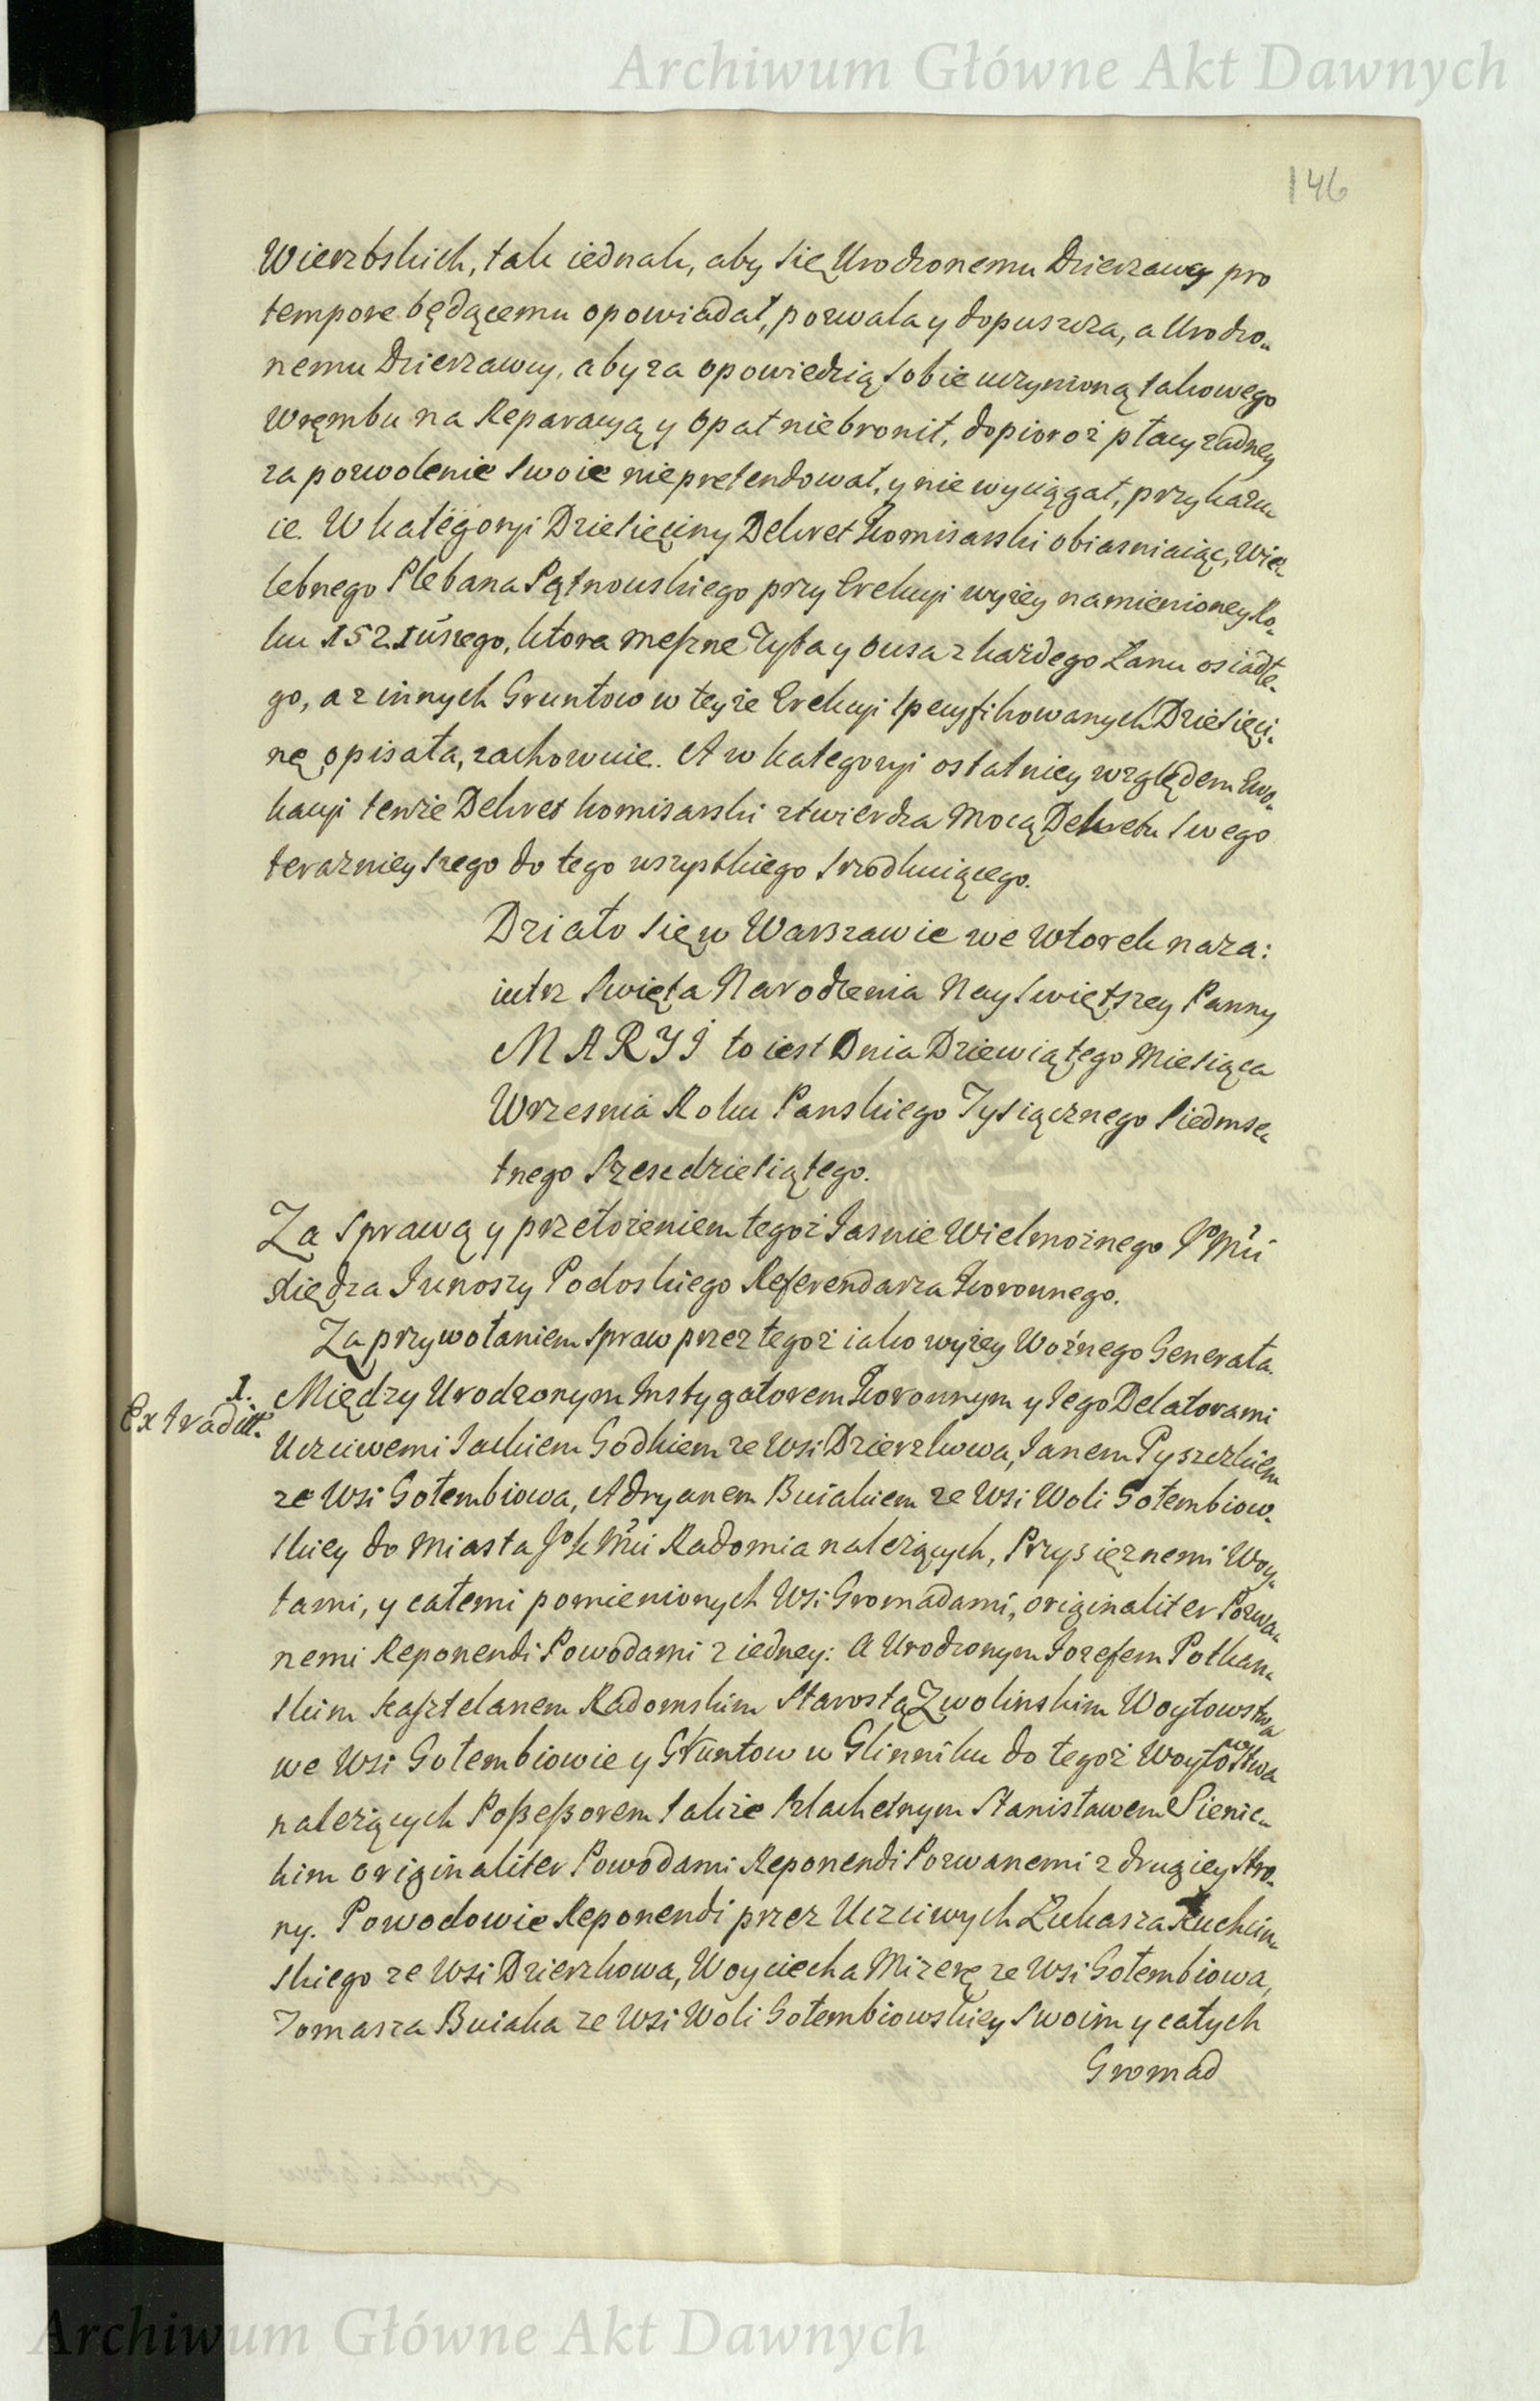 Archiwum Główne Akt Dawnych
146
Wierzbskich, tak iednak, aby się Urodzonemu Dzierzawcy pro
tempore będącemu opowiadał, pozwala y dopuszcza, a Urodzo-
nemu Dzierzawcy, aby za opowiedzią sobie uczynioną takowego
Wrębu na Reparacyą y opał niebronił, dopioroż płacy żadney
za pozwolenie swoie niepretendował, y nie wyciągał, przykazu-
ie. W kategoryi Dziesięciny Dekret Komisarski obiasniaiąc, Wie-
lebnego Plebana Pątnowskiego przy Erekcyi wyżey namienioney Ro-
ku 1521üszego, ktora meszne Zyta y Owsa z każdego Łanu osiadłe-
go, a z innych Gruntow w teyże Erekcyi specyfikowanych Dziesięci-
nę opisała, zachowuie. A w kategoryi ostatniey względem Ewo-
kacyi tenże Dekret komisarski ztwierdza Mocą Dekretu swego
teraznieyszego do tego wszystkiego srzodkuiącego.
Działo się w Warszawie we Wtorek naza:
iutrz Swięta Narodzenia Nayswiętszey Panny
MARYI to iest Dnia Dziewiątego Miesiąca
Wrzesnia Roku Panskiego Tysiącznego Siedmse-
tnego Szescdziesiątego.
Za sprawą y przełożeniem tegoż Iasnie Wielmożnego Jo Mci
Xiędza Iunoszy Podoskiego Referendarza Koronnego.
Za przywołaniem spraw przez tegoż iako wyżey Woźnego Generała.
1. Między Urodzonym Instygatorem Koronnym y Iego Delatorami
Extradit.
Uczciwemi Iackiem Godkiem ze Wsi Dzierzkowa, Ianem Pyszczkiem
ze Wsi Gołembiowa, Adryanem Buiakiem ze Wsi Woli Gołembiow-
skiey do Miasta Jo K Mci Radomia należących, Przysięznemi Woy-
tami, y całemi pomienionych Wsi Gromadami, originaliter Pozwa-
nemi Reponendi Powodami z iedney: A Urodzonym Iozefem Potkan-
skim Kasztelanem Radomskim Starostą Zwolinskim Woytowstwa
we Wsi Gołembiowie y Gruntow w Glinniku do tegoż Woytowstwa
należących Possessorem także Szlachetnym Stanisławem Sienic-
kim originaliter Powodami Reponendi Pozwanemi z drugiey stro-
ny. Powodowie Reponendi przez Uczciwych Łukasza Kuchcin-
skiego ze Wsi Dzierzkowa, Woyciecha Mizerę ze Wsi Gołembiowa,
Tomasza Buiaka ze Wsi Woli Gołembiowskiey swoim y całych
Gromad
Archiwum Główne Akt Dawnych